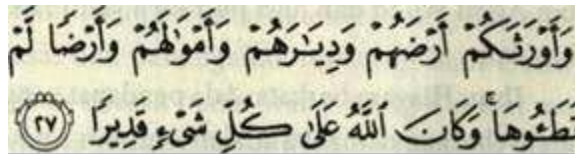 وَأَوْرَثَكُمْ أَرْضَهُمْ وَدِيَٰرَهُمْ وَأَمْوَٰلَهُمْ وَأَرْضًا لَّمْ
تَطَـُٔوهَا وَكَانَ ٱللَّهُ عَلَىٰ كُلِّ شَىْءٍ قَدِيرًا ٢٧